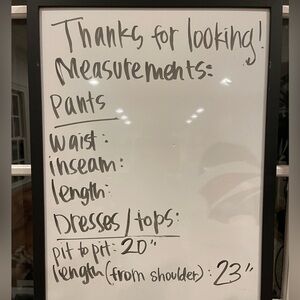 Thanks for looking!
Measurements:
Pants
waist:
inseam:
length:
Dresses/tops:
pit to pit: 20"
length (from shoulder): 23"